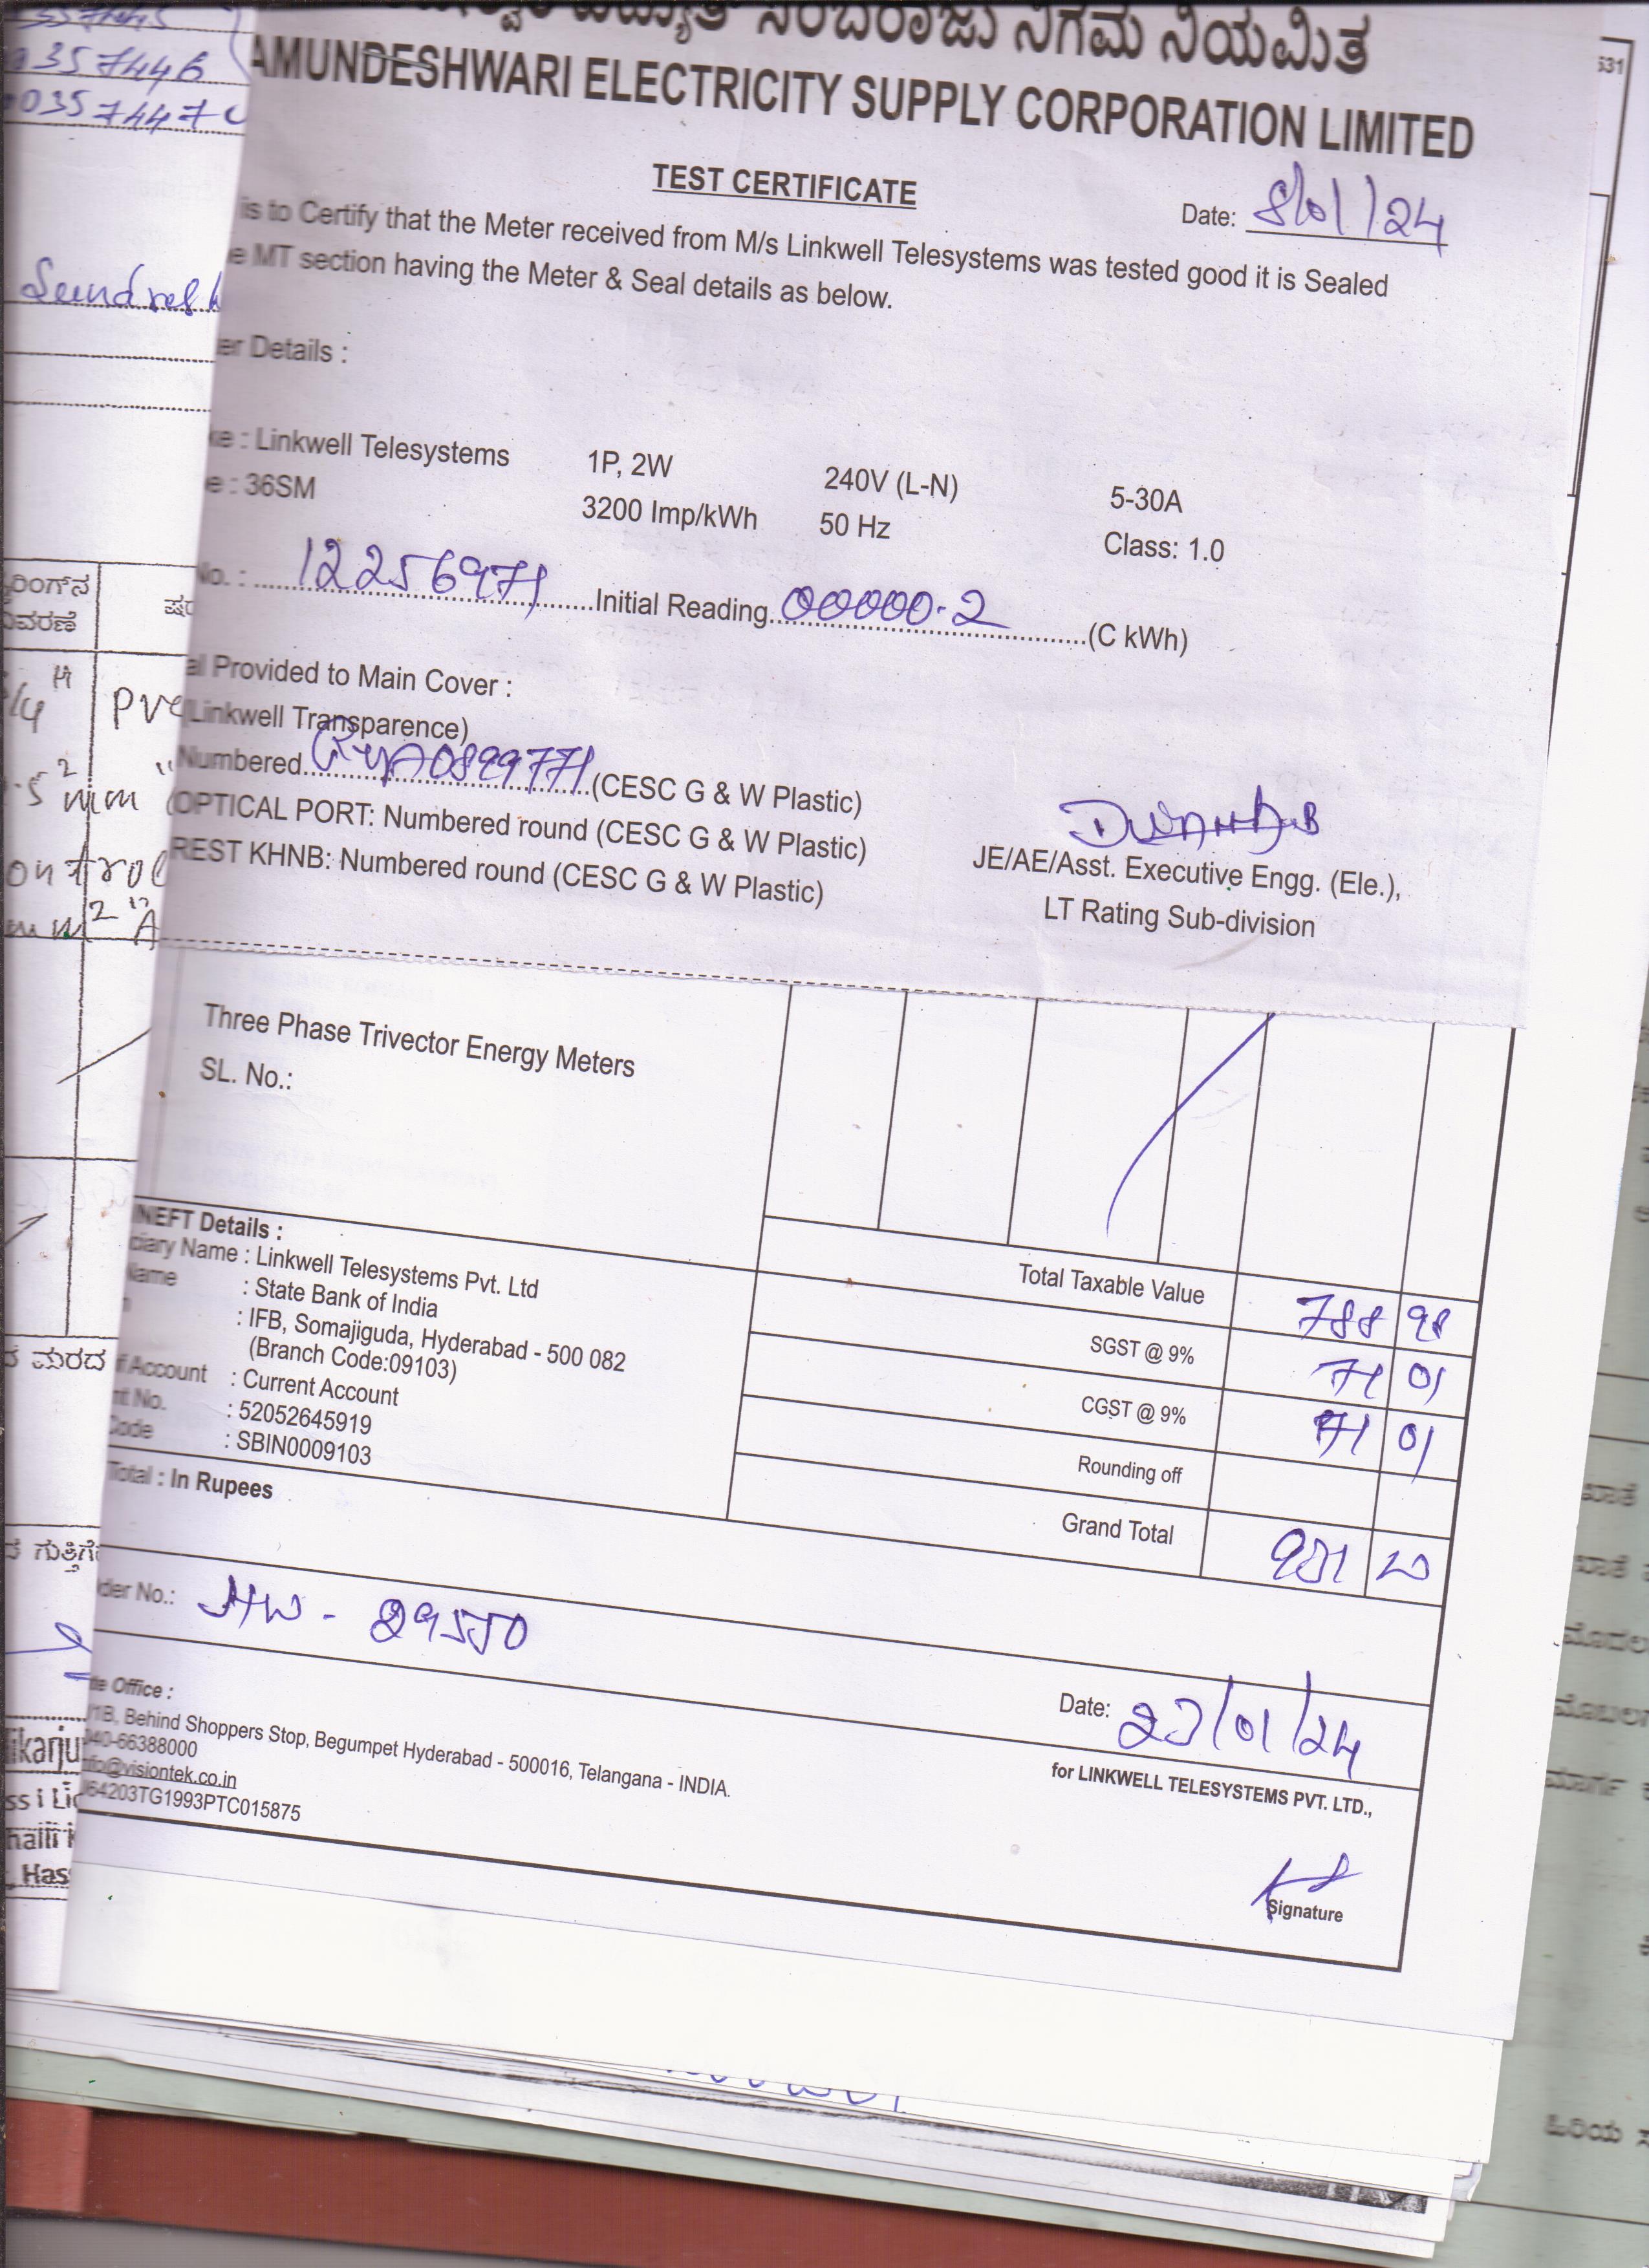 ನಿಗಮ ನಿಯಮಿತ
AMUNDESHWARI ELECTRICITY SUPPLY CORPORATION LIMITED
TEST CERTIFICATE
Date: 8/01/24
is to Certify that the Meter received from M/s Linkwell Telesystems was tested good it is Sealed
e MT section having the Meter & Seal details as below.
er Details :
ke : Linkwell Telesystems 1P, 2W 240V (L-N) 5-30A
e : 36SM 3200 Imp/kWh 50 Hz Class: 1.0
No. : 12256971 Initial Reading 00000.2 (C kWh)
al Provided to Main Cover :
(Linkwell Transparence)
Numbered (CESC G & W Plastic)
OPTICAL PORT: Numbered round (CESC G & W Plastic)
REST KHNB: Numbered round (CESC G & W Plastic)
JE/AE/Asst. Executive Engg. (Ele.),
LT Rating Sub-division
Three Phase Trivector Energy Meters
SL. No.:
NEFT Details :
ciary Name : Linkwell Telesystems Pvt. Ltd
Name : State Bank of India
: IFB, Somajiguda, Hyderabad - 500 082
(Branch Code:09103)
f Account : Current Account
nt No. : 52052645919
Code : SBIN0009103
Total : In Rupees
Total Taxable Value 788 98
SGST @ 9% 71 01
CGST @ 9% 71 01
Rounding off
Grand Total 931
der No.: MW - 29550
Date: 23/01/24
te Office :
/1B, Behind Shoppers Stop, Begumpet Hyderabad - 500016, Telangana - INDIA.
040-66388000
nfo@visiontek.co.in
U64203TG1993PTC015875
for LINKWELL TELESYSTEMS PVT. LTD.,
Signature
0357446
0357447
ರಿಂಗ್‌ನ
ವಿವರಣೆ
PVC
mm
ontrol
ಮರದ
531
ಹಿರಿಯ